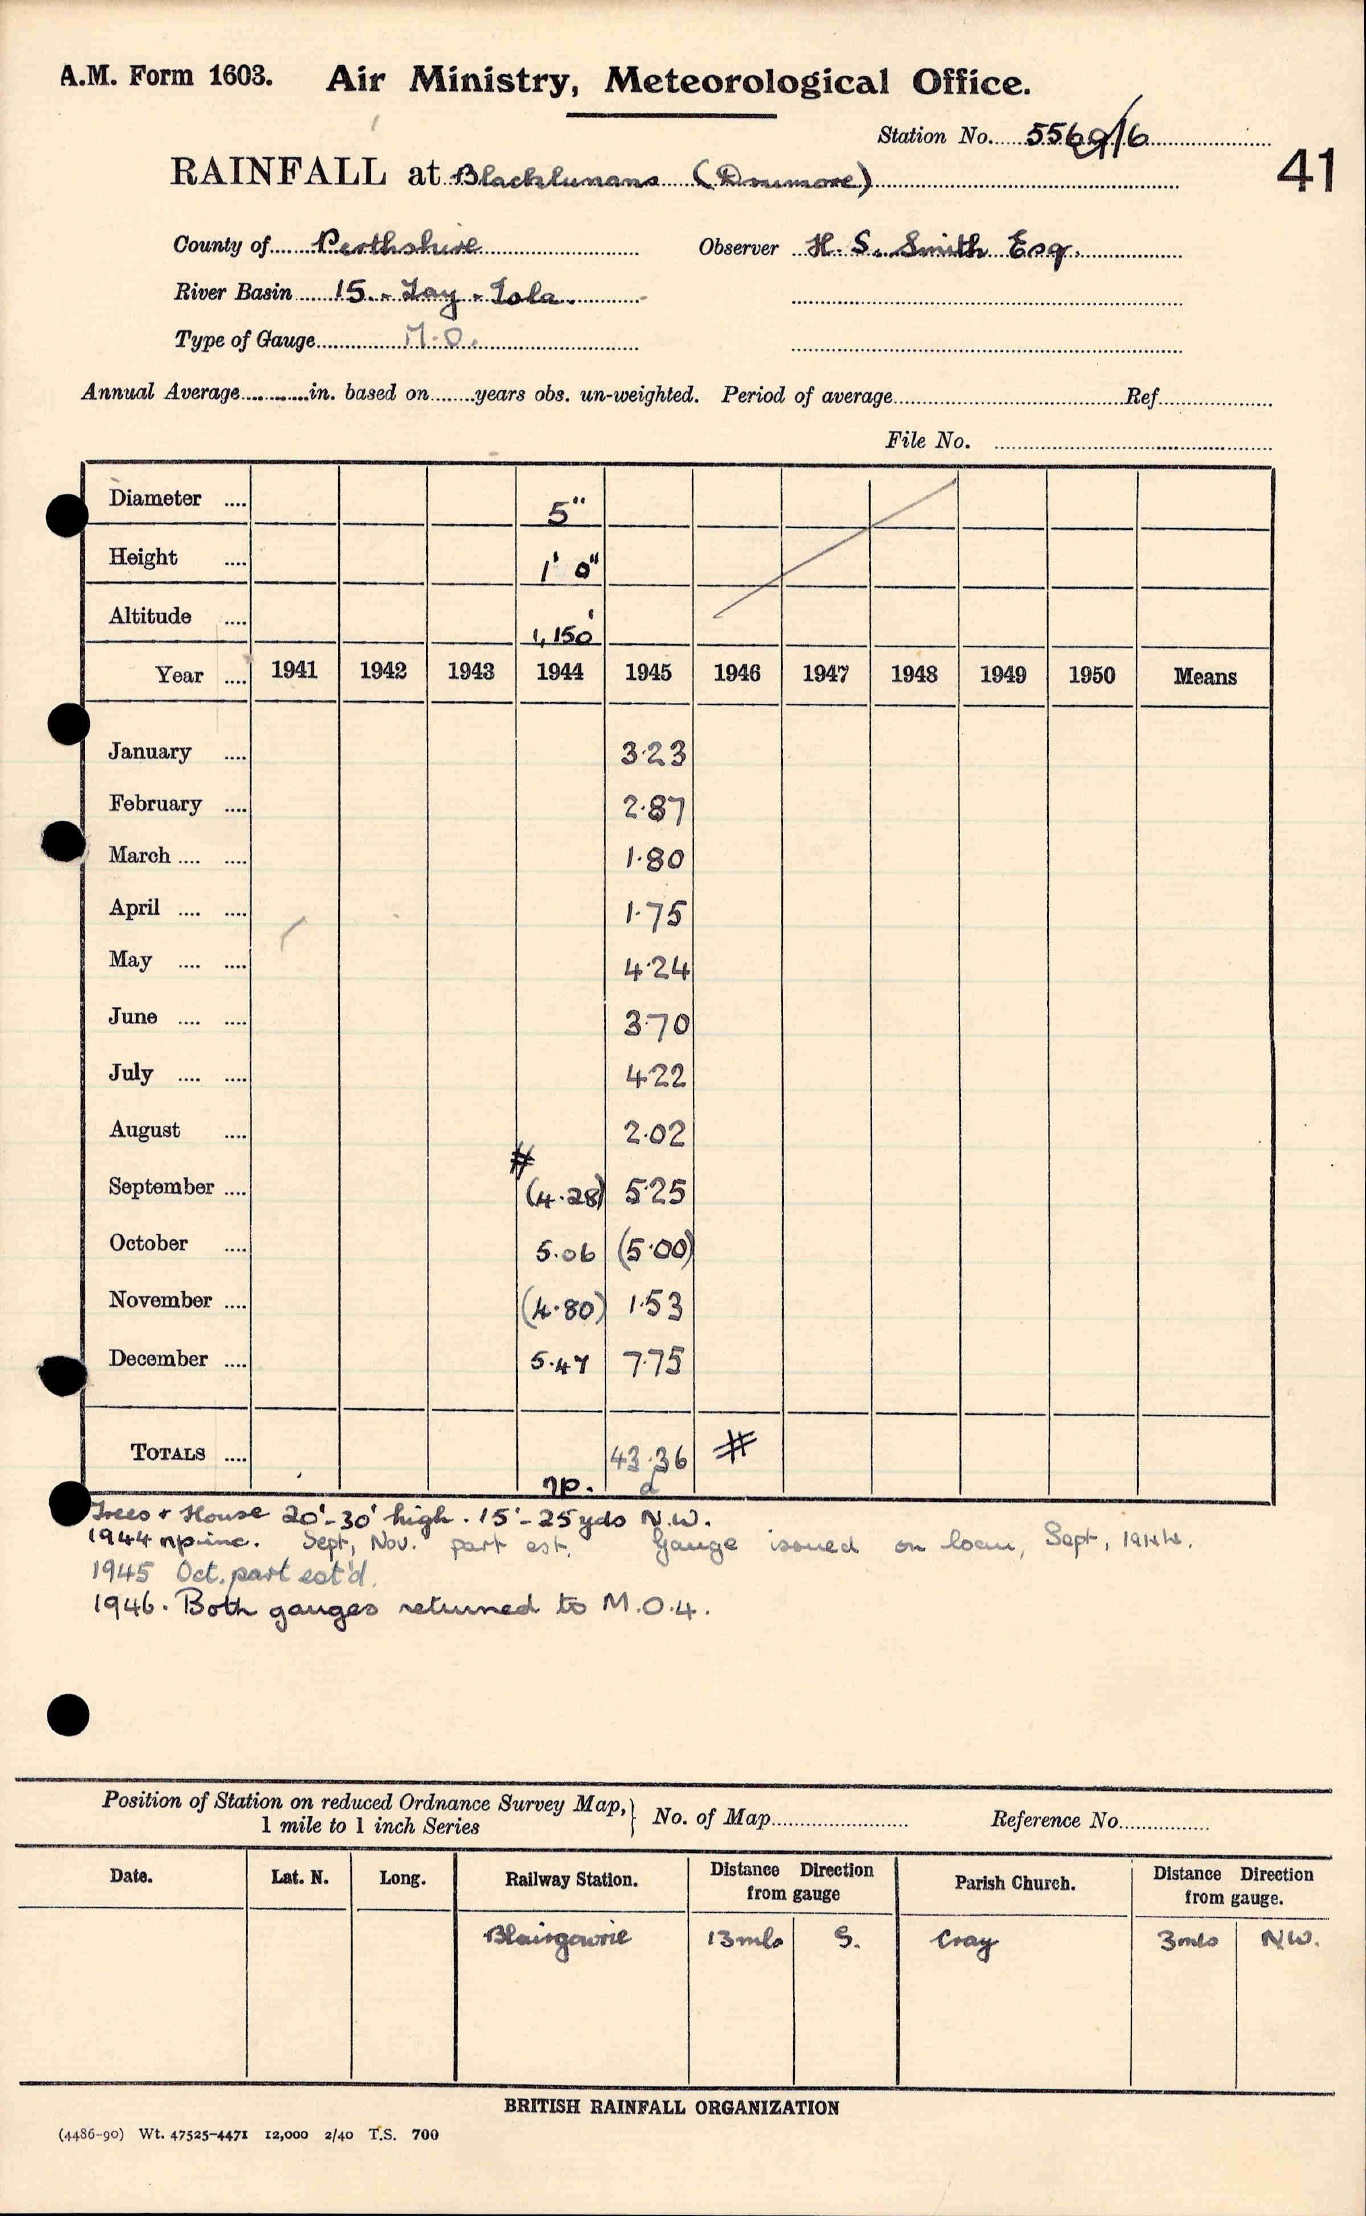 A.M. Form 1603. Air Ministry, Meteorological Office.
Station No. 5569/6
41
RAINFALL at Blacklunans (Drumore)
County of Perthshire Observer H. S. Smith Esq.
River Basin 15. - Tay - Isla.
Type of Gauge M.O.
Annual Average in. based on years obs. un-weighted. Period of average Ref
File No.
Diameter .... 5"
Height .... 1' 0"
Altitude .... 1,150'
Year .... 1941 1942 1943 1944 1945 1946 1947 1948 1949 1950 Means
January .... 3.23
February .... 2.87
March .... .... 1.80
April .... .... 1.75
May .... .... 4.24
June .... .... 3.70
July .... .... 4.22
August .... 2.02
#
September .... (4.28) 5.25
October .... 5.06 (5.00)
November .... (4.80) 1.53
December .... 5.47 7.75
TOTALS .... 43.36 #
np. a
Trees & House 20'-30' high. 15'-25yds N.W.
1944 np inc. Sept, Nov. part est. Gauge issued on loan, Sept, 1944.
1945 Oct. part est'd.
1946. Both gauges returned to M.O.4.
Position of Station on reduced Ordnance Survey Map, 1 mile to 1 inch Series } No. of Map Reference No.
Date. Lat. N. Long. Railway Station. Distance Direction from gauge Parish Church. Distance Direction from gauge.
Blairgowrie 13mls S. Cray 3mls N.W.
BRITISH RAINFALL ORGANIZATION
(4486-90) Wt. 47525-4471 12,000 2/40 T.S. 700